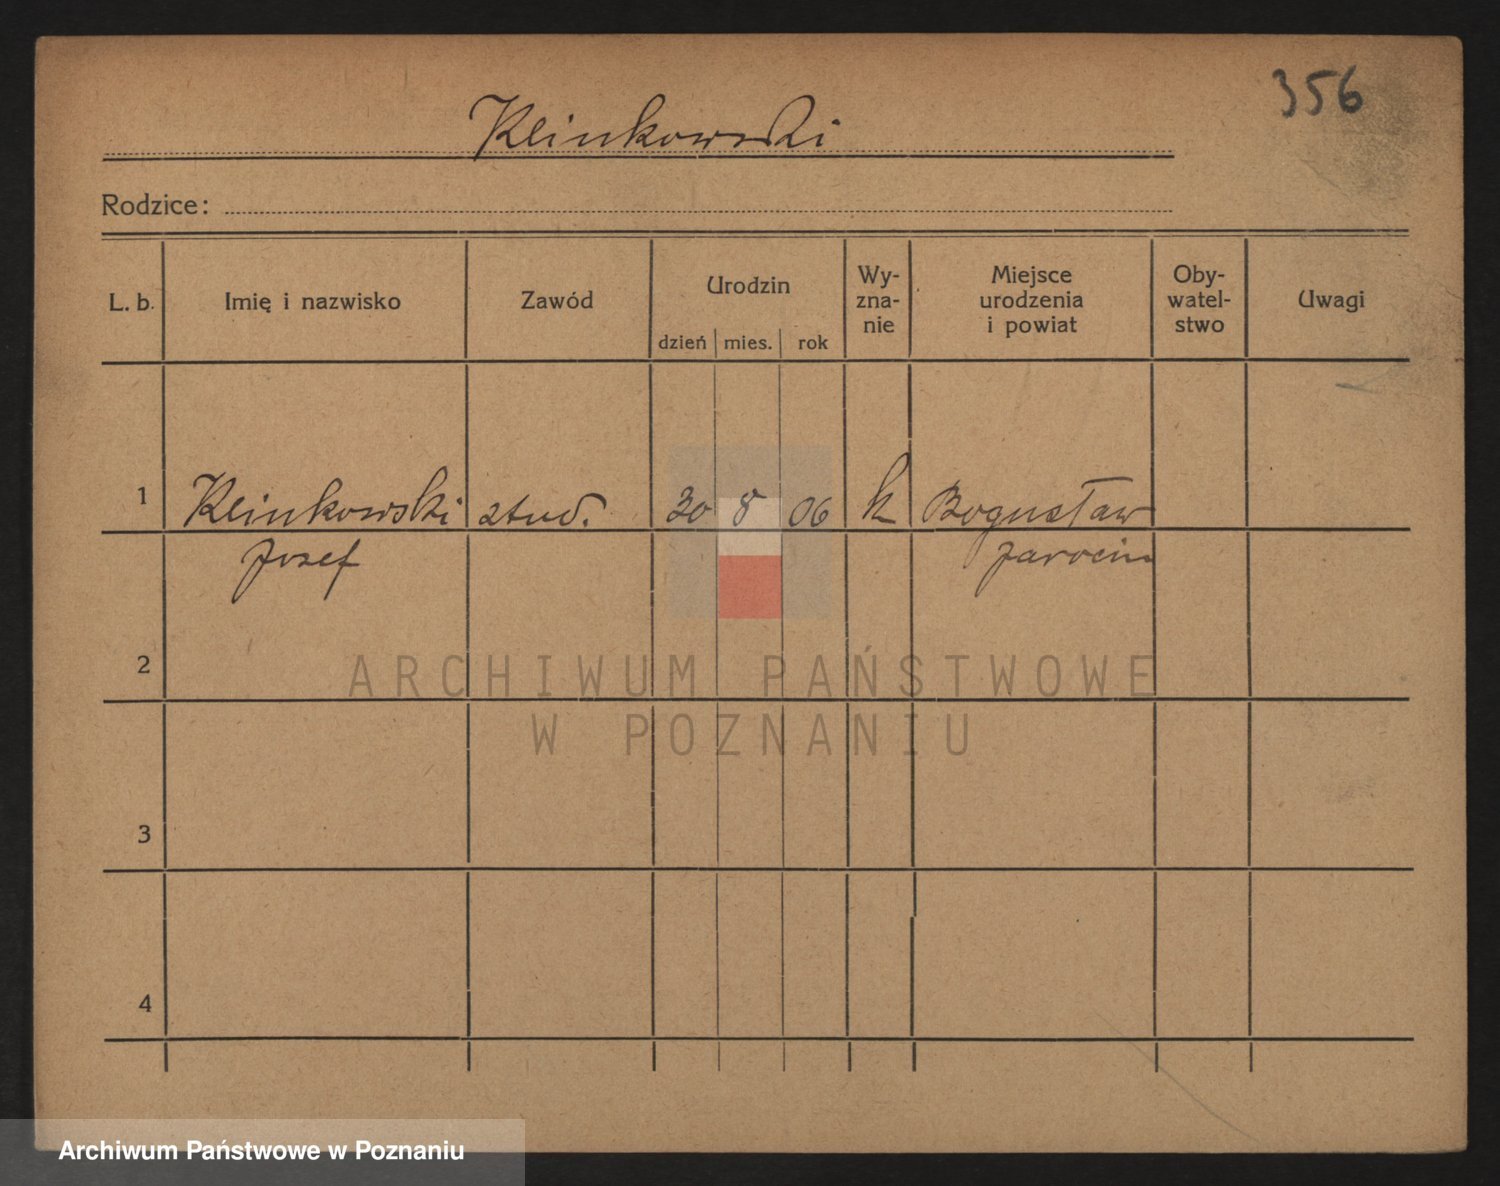 356
Klinkowski
Rodzice:
L. b. Imię i nazwisko Zawód Urodzin dzień mies. rok Wy- zna- nie Miejsce urodzenia i powiat Oby- watel- stwo Uwagi
1 Klinkowski stud. 30 8 06 k Bogusław
Jozef Jarocin
2
ARCHIWUM PAŃSTWOWE
W POZNANIU
3
4
Archiwum Państwowe w Poznaniu